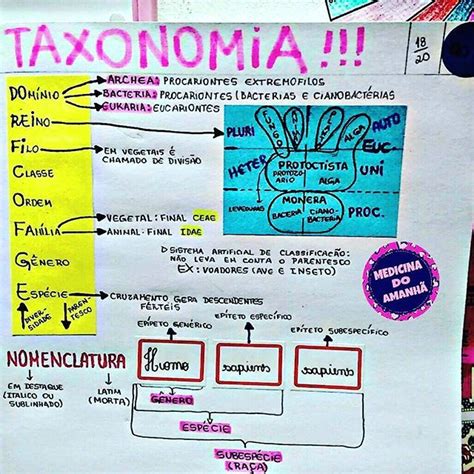 TAXONOMIA!!!
18
20
DOMÍNIO
ARCHEA: PROCARIONTES EXTREMÓFILOS
BACTERIA: PROCARIONTES (BACTÉRIAS E CIANOBACTÉRIAS
EUKARIA: EUCARIONTES
REINO
FILO
EM VEGETAIS É
CHAMADO DE DIVISÃO
CLASSE
ORDEM
FAMÍLIA
VEGETAL: FINAL CEAE
ANIMAL: FINAL IDAE
GÊNERO
ESPÉCIE
CRUZAMENTO GERA DESCENDENTES
FÉRTEIS
DIVERSIDADE
PARENTESCO
PLURI
FUNGO
ALGA
AUTO
HETER
EUC.
PROTOCTISTA
PROTOZOÁRIO
ALGA
UNI
LEVEDURAS
MONERA
BACTERIA
CIANOBACTERIA
PROC.
SISTEMA ARTIFICIAL DE CLASSIFICAÇÃO:
NÃO LEVA EM CONTA O PARENTESCO
EX: VOADORES (AVE E INSETO)
MEDICINA
DO
AMANHÃ
NOMENCLATURA
EM DESTAQUE
(ITÁLICO OU
SUBLINHADO)
LATIM
(MORTA)
EPÍTETO GENÉRICO
EPÍTETO ESPECÍFICO
EPÍTETO SUBESPECÍFICO
Homo
sapiens
sapiens
GÊNERO
ESPÉCIE
SUBESPÉCIE
(RAÇA)